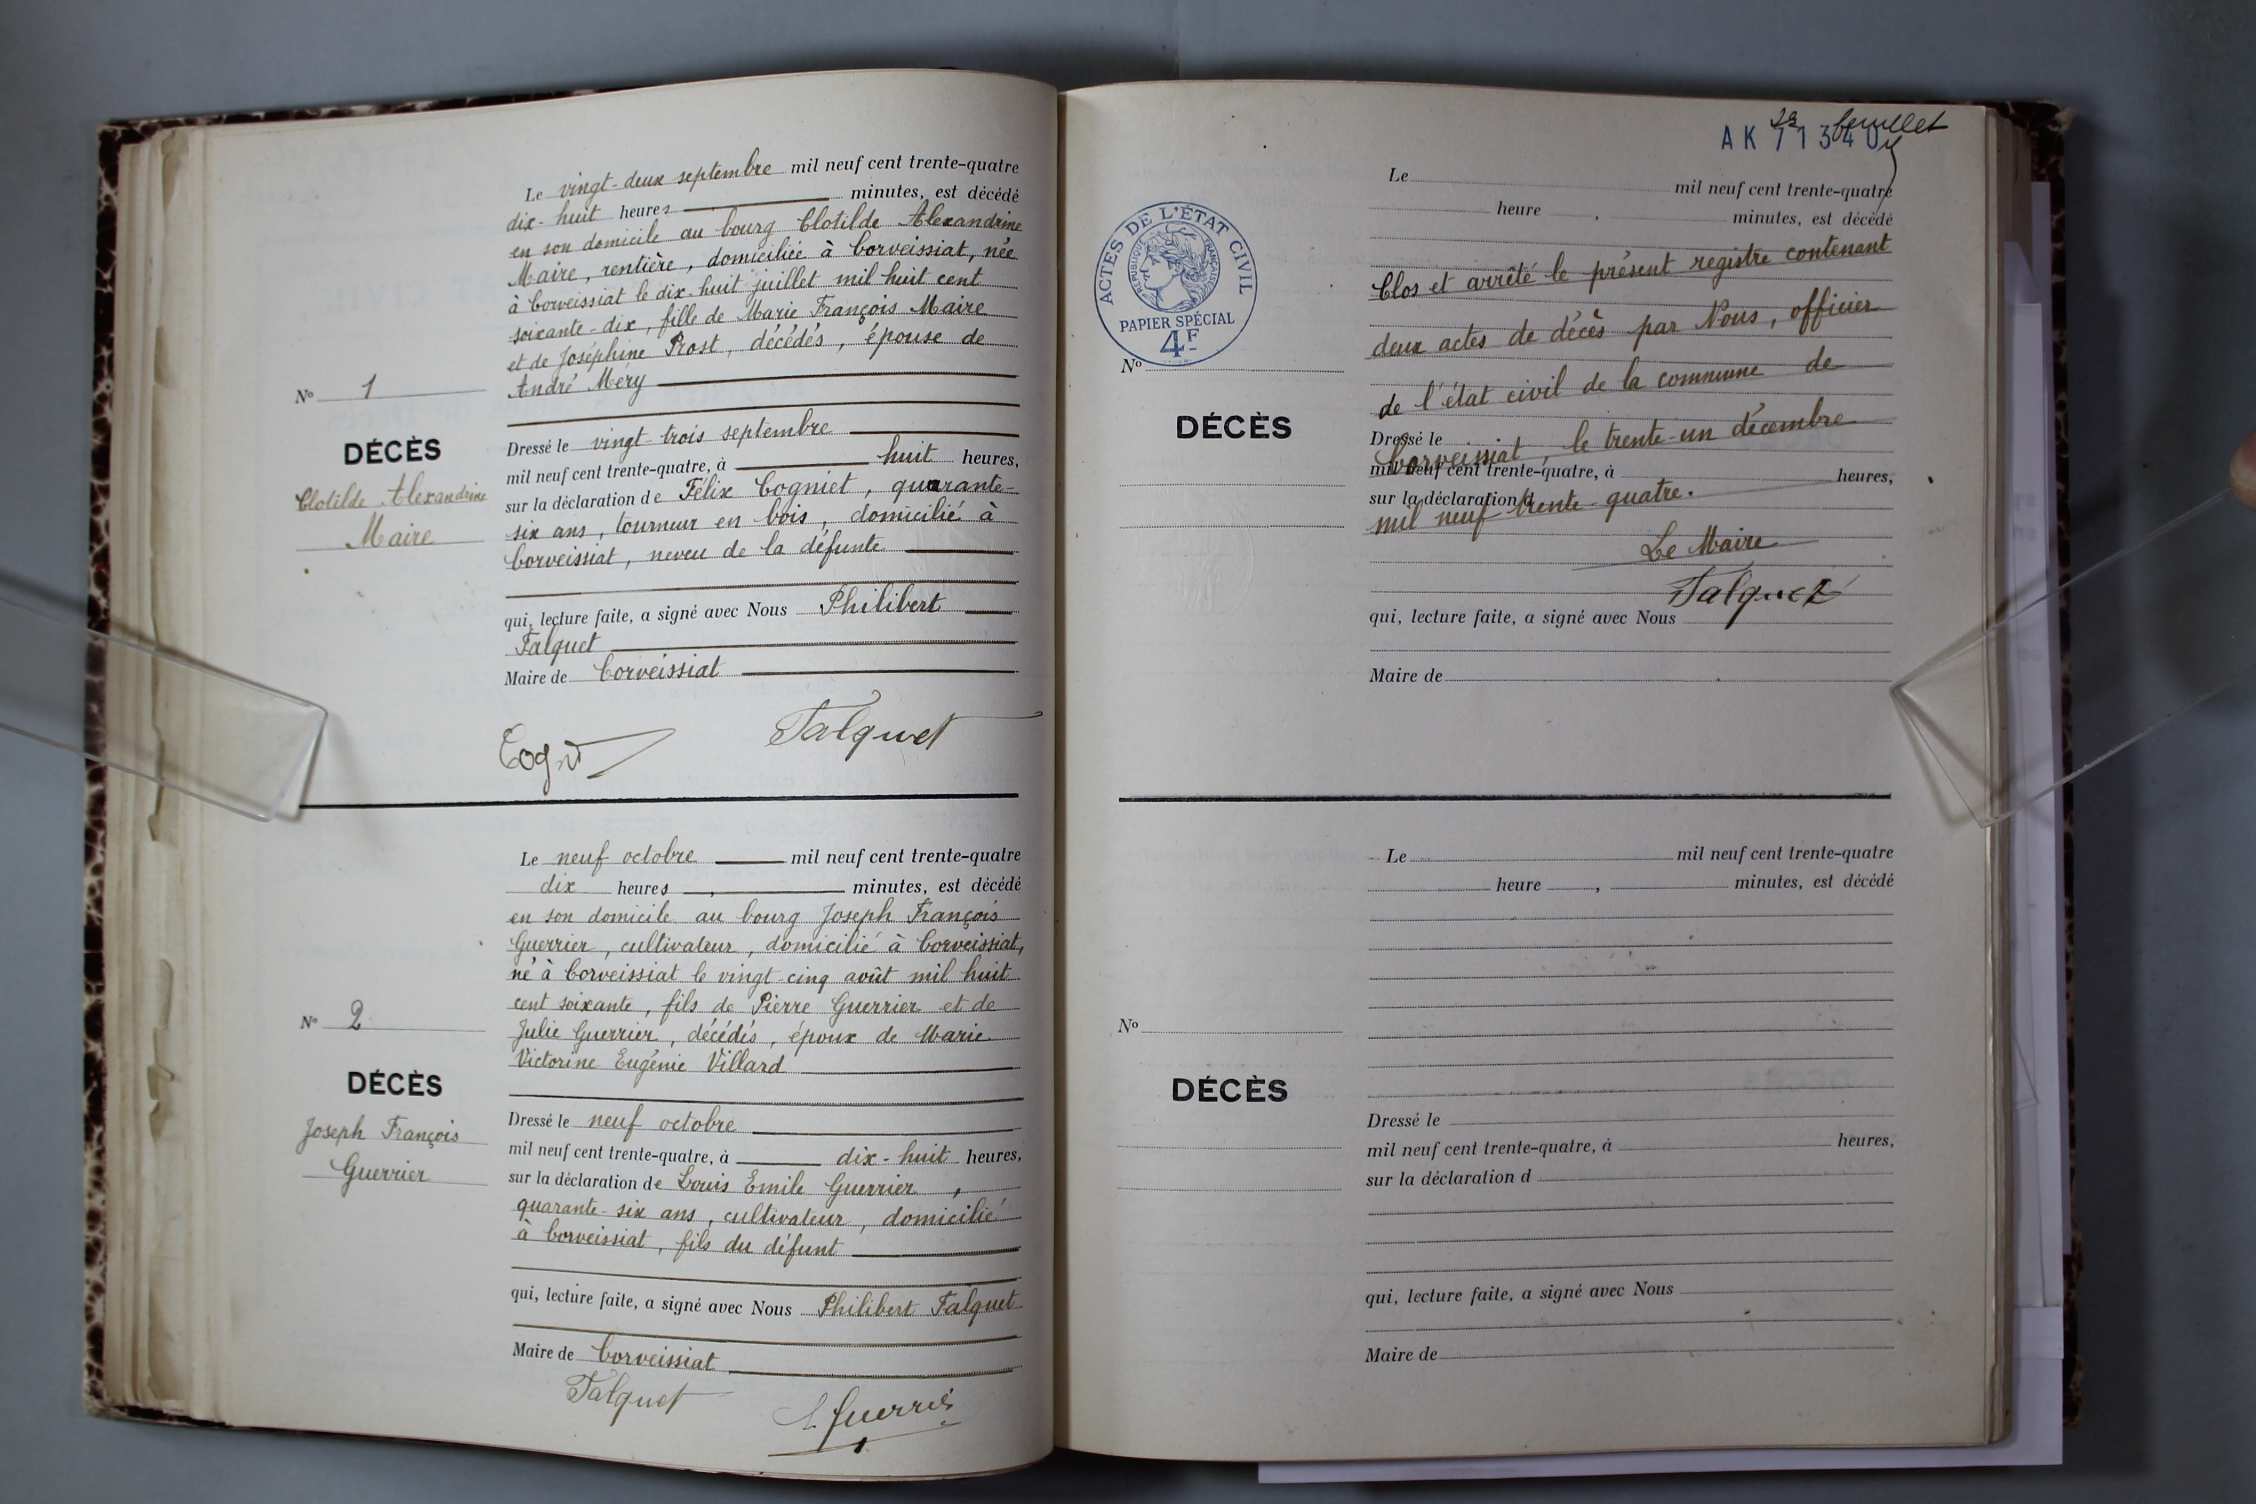 Le vingt-deux septembre mil neuf cent trente-quatre
dix-huit heures minutes, est décédé
en son domicile au bourg Clotilde Alexandrine
Maire, rentière, domiciliée à Corveissiat, née
à Corveissiat le dix-huit juillet mil huit cent
soixante-dix, fille de Marie François Maire
et de Joséphine Prost, décédés, épouse de
André Méry
No 1
DÉCÈS
Clotilde Alexandrine
Maire
Dressé le vingt-trois septembre
mil neuf cent trente-quatre, à huit heures,
sur la déclaration de Félix Cogniet, quarante-
six ans, tourneur en bois, domicilié à
Corveissiat, neveu de la défunte
qui, lecture faite, a signé avec Nous Philibert
Falquet
Maire de Corveissiat
Falquet
Le neuf octobre mil neuf cent trente-quatre
dix heures, minutes, est décédé
en son domicile au bourg Joseph François
Guerrier, cultivateur, domicilié à Corveissiat,
né à Corveissiat le vingt-cinq août mil huit
cent soixante, fils de Pierre Guerrier et de
Julie Guerrier, décédés, époux de Marie
Victorine Eugénie Villard
No 2
DÉCÈS
Joseph François
Guerrier
Dressé le neuf octobre
mil neuf cent trente-quatre, à dix-huit heures,
sur la déclaration de Louis Emile Guerrier,
quarante-six ans, cultivateur, domicilié
à Corveissiat, fils du défunt
qui, lecture faite, a signé avec Nous Philibert Falquet
Maire de Corveissiat
Falquet
feuillet
AK 71340
ACTES DE L'ÉTAT CIVIL
RÉPUBLIQUE FRANÇAISE
PAPIER SPÉCIAL
4F
Le mil neuf cent trente-quatre
heure , minutes, est décédé
Clos et arrêté le présent registre contenant
deux actes de décès par Nous, officier
de l'état civil de la commune de
Corveissiat, le trente-un décembre
mil neuf trente-quatre.
Le Maire
Falquet
No
DÉCÈS
Dressé le
mil neuf cent trente-quatre, à heures,
sur la déclaration d
qui, lecture faite, a signé avec Nous
Maire de
Le mil neuf cent trente-quatre
heure , minutes, est décédé
No
DÉCÈS
Dressé le
mil neuf cent trente-quatre, à heures,
sur la déclaration d
qui, lecture faite, a signé avec Nous
Maire de